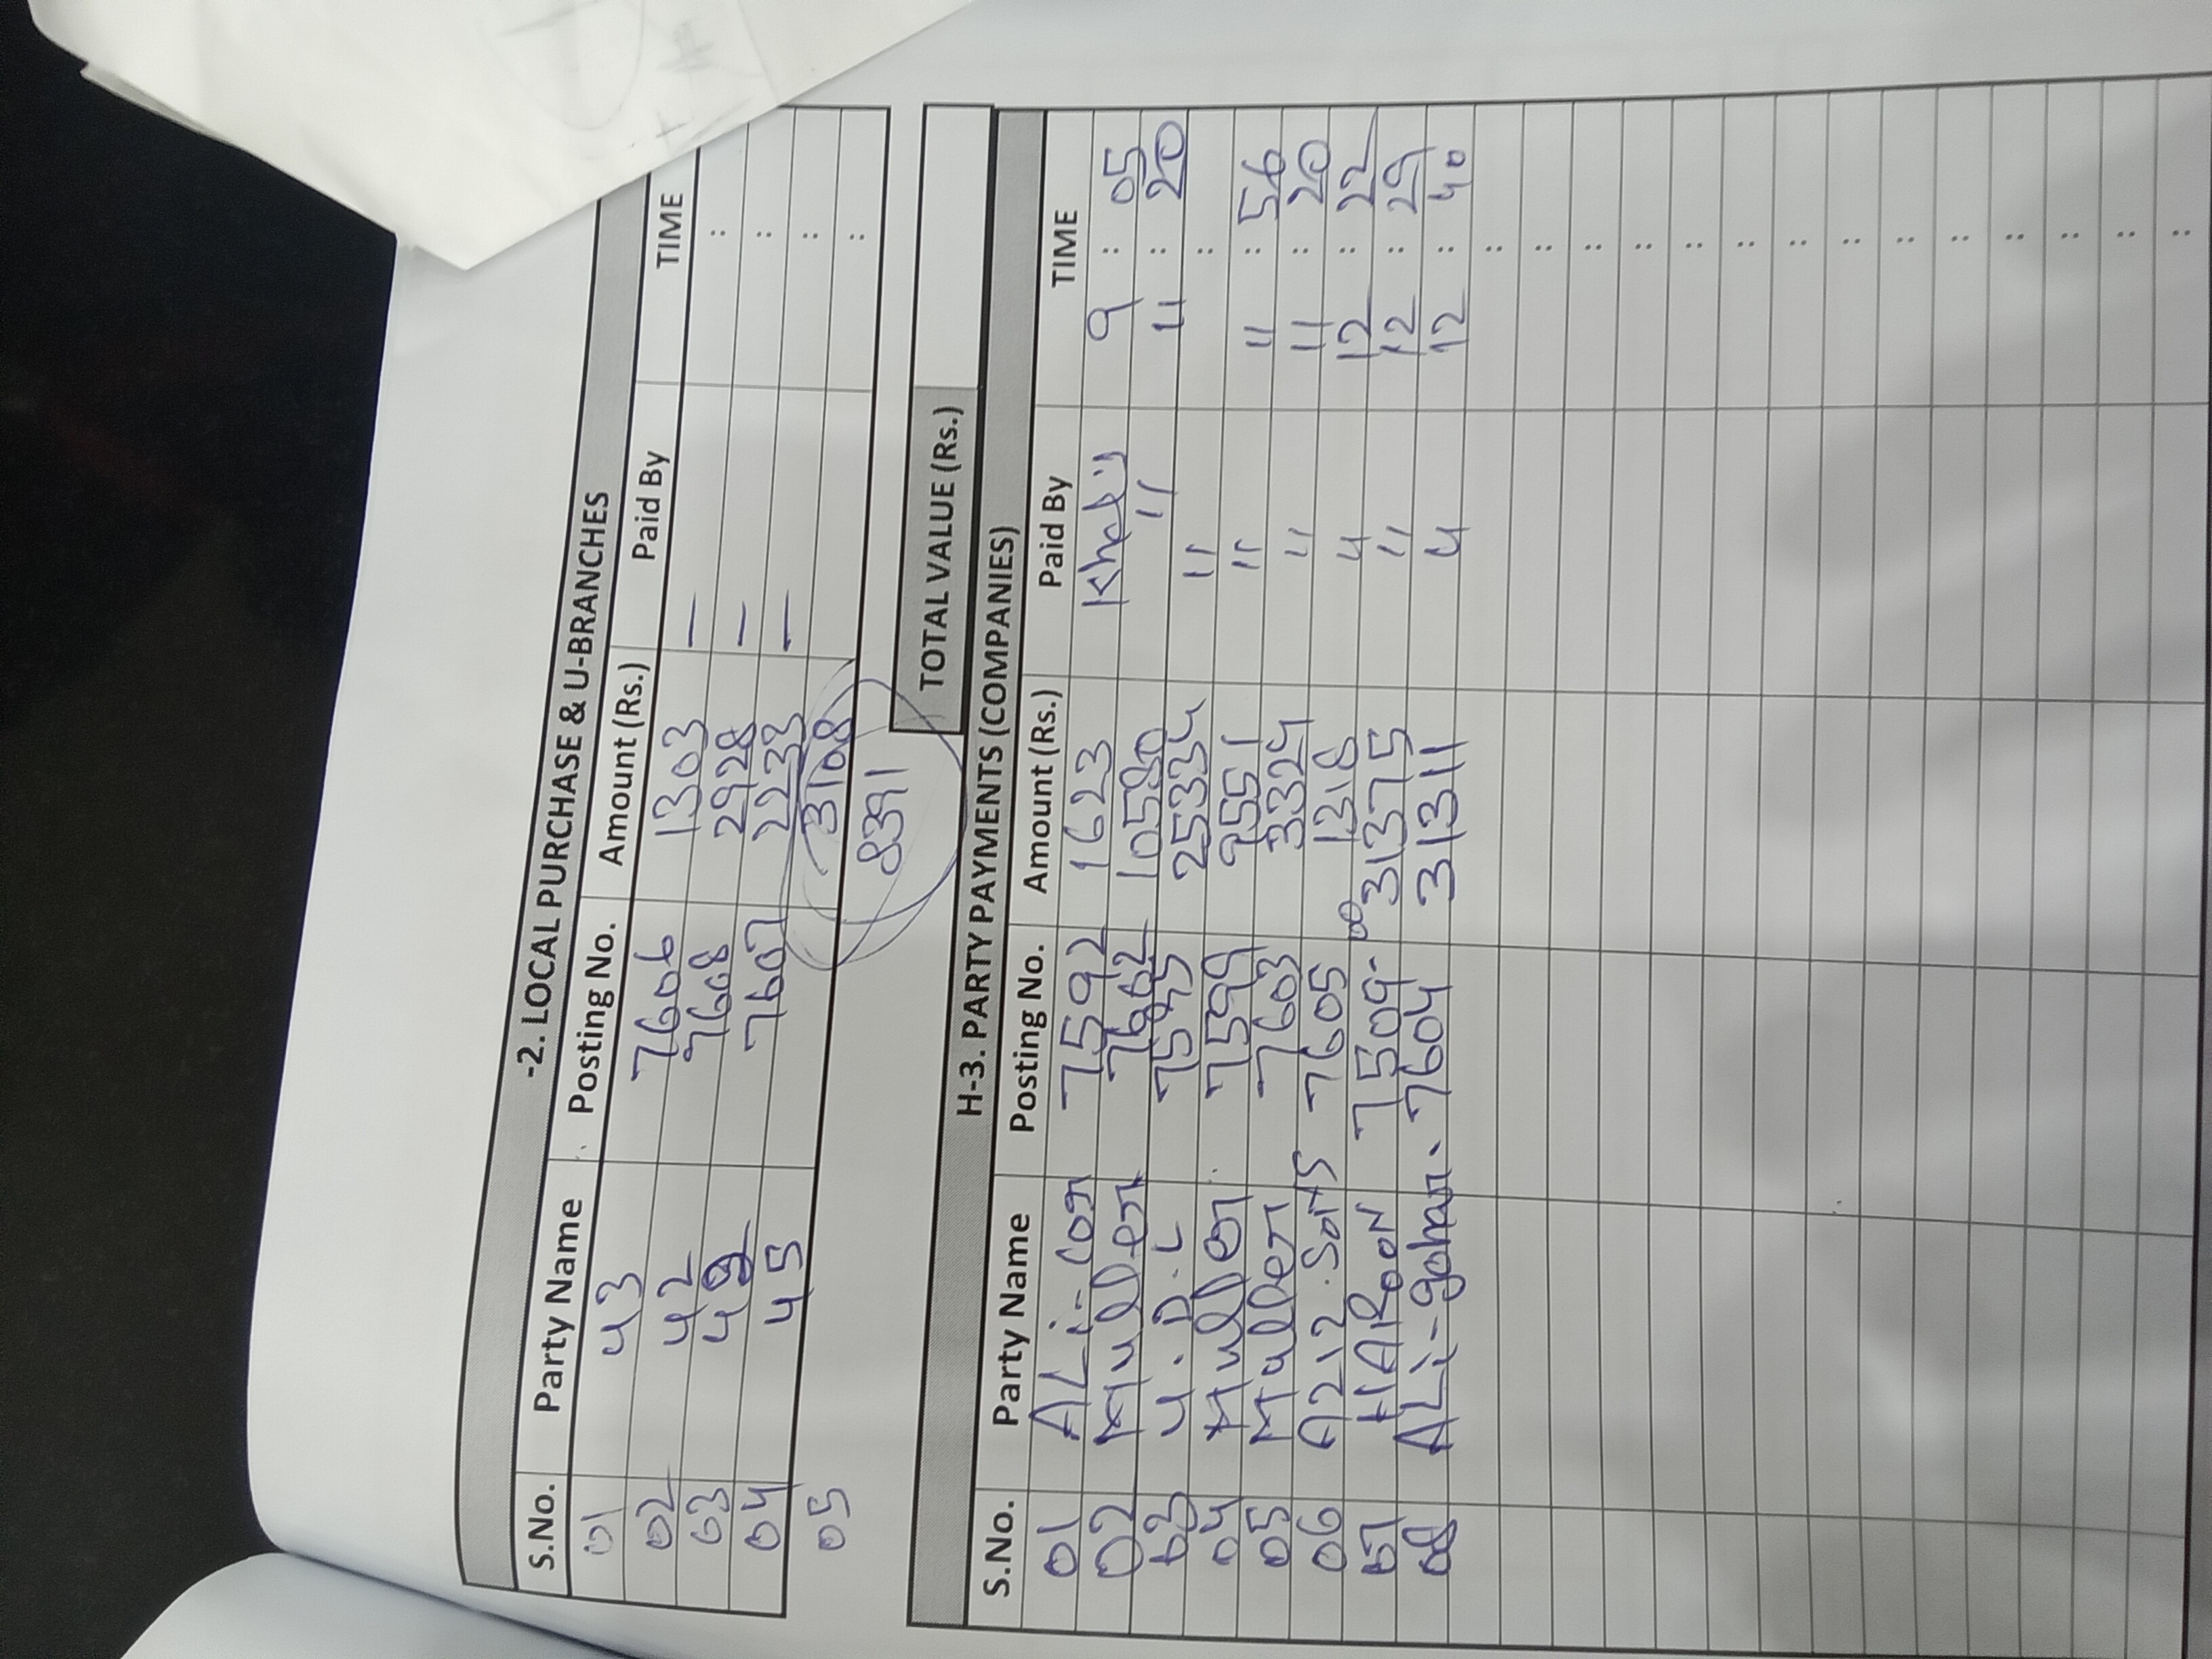 -2. LOCAL PURCHASE & U-BRANCHES
S.No. Party Name Posting No. Amount (Rs.) Paid By TIME
01 43 7606 1303 — :
02 42 7608 2928 — :
03 7607 2233 — :
04 45 3108 :
05 8391
TOTAL VALUE (Rs.)
H-3. PARTY PAYMENTS (COMPANIES)
S.No. Party Name Posting No. Amount (Rs.) Paid By TIME
01 ALi-Con 7592 1623 9 : 05
02 Muller 7602 10580 11 11 : 20
03 U.D.L 25334 11 :
04 Muller 7599 2551 11 11 : 56
05 Muller 7603 33324 11 11 : 20
06 A212.Sons 7605 1318 4 12 : 22
07 HAROON 7509- 31375 11 12 : 29
08 ALi-gohar. 7604 31311 4 12 : 40